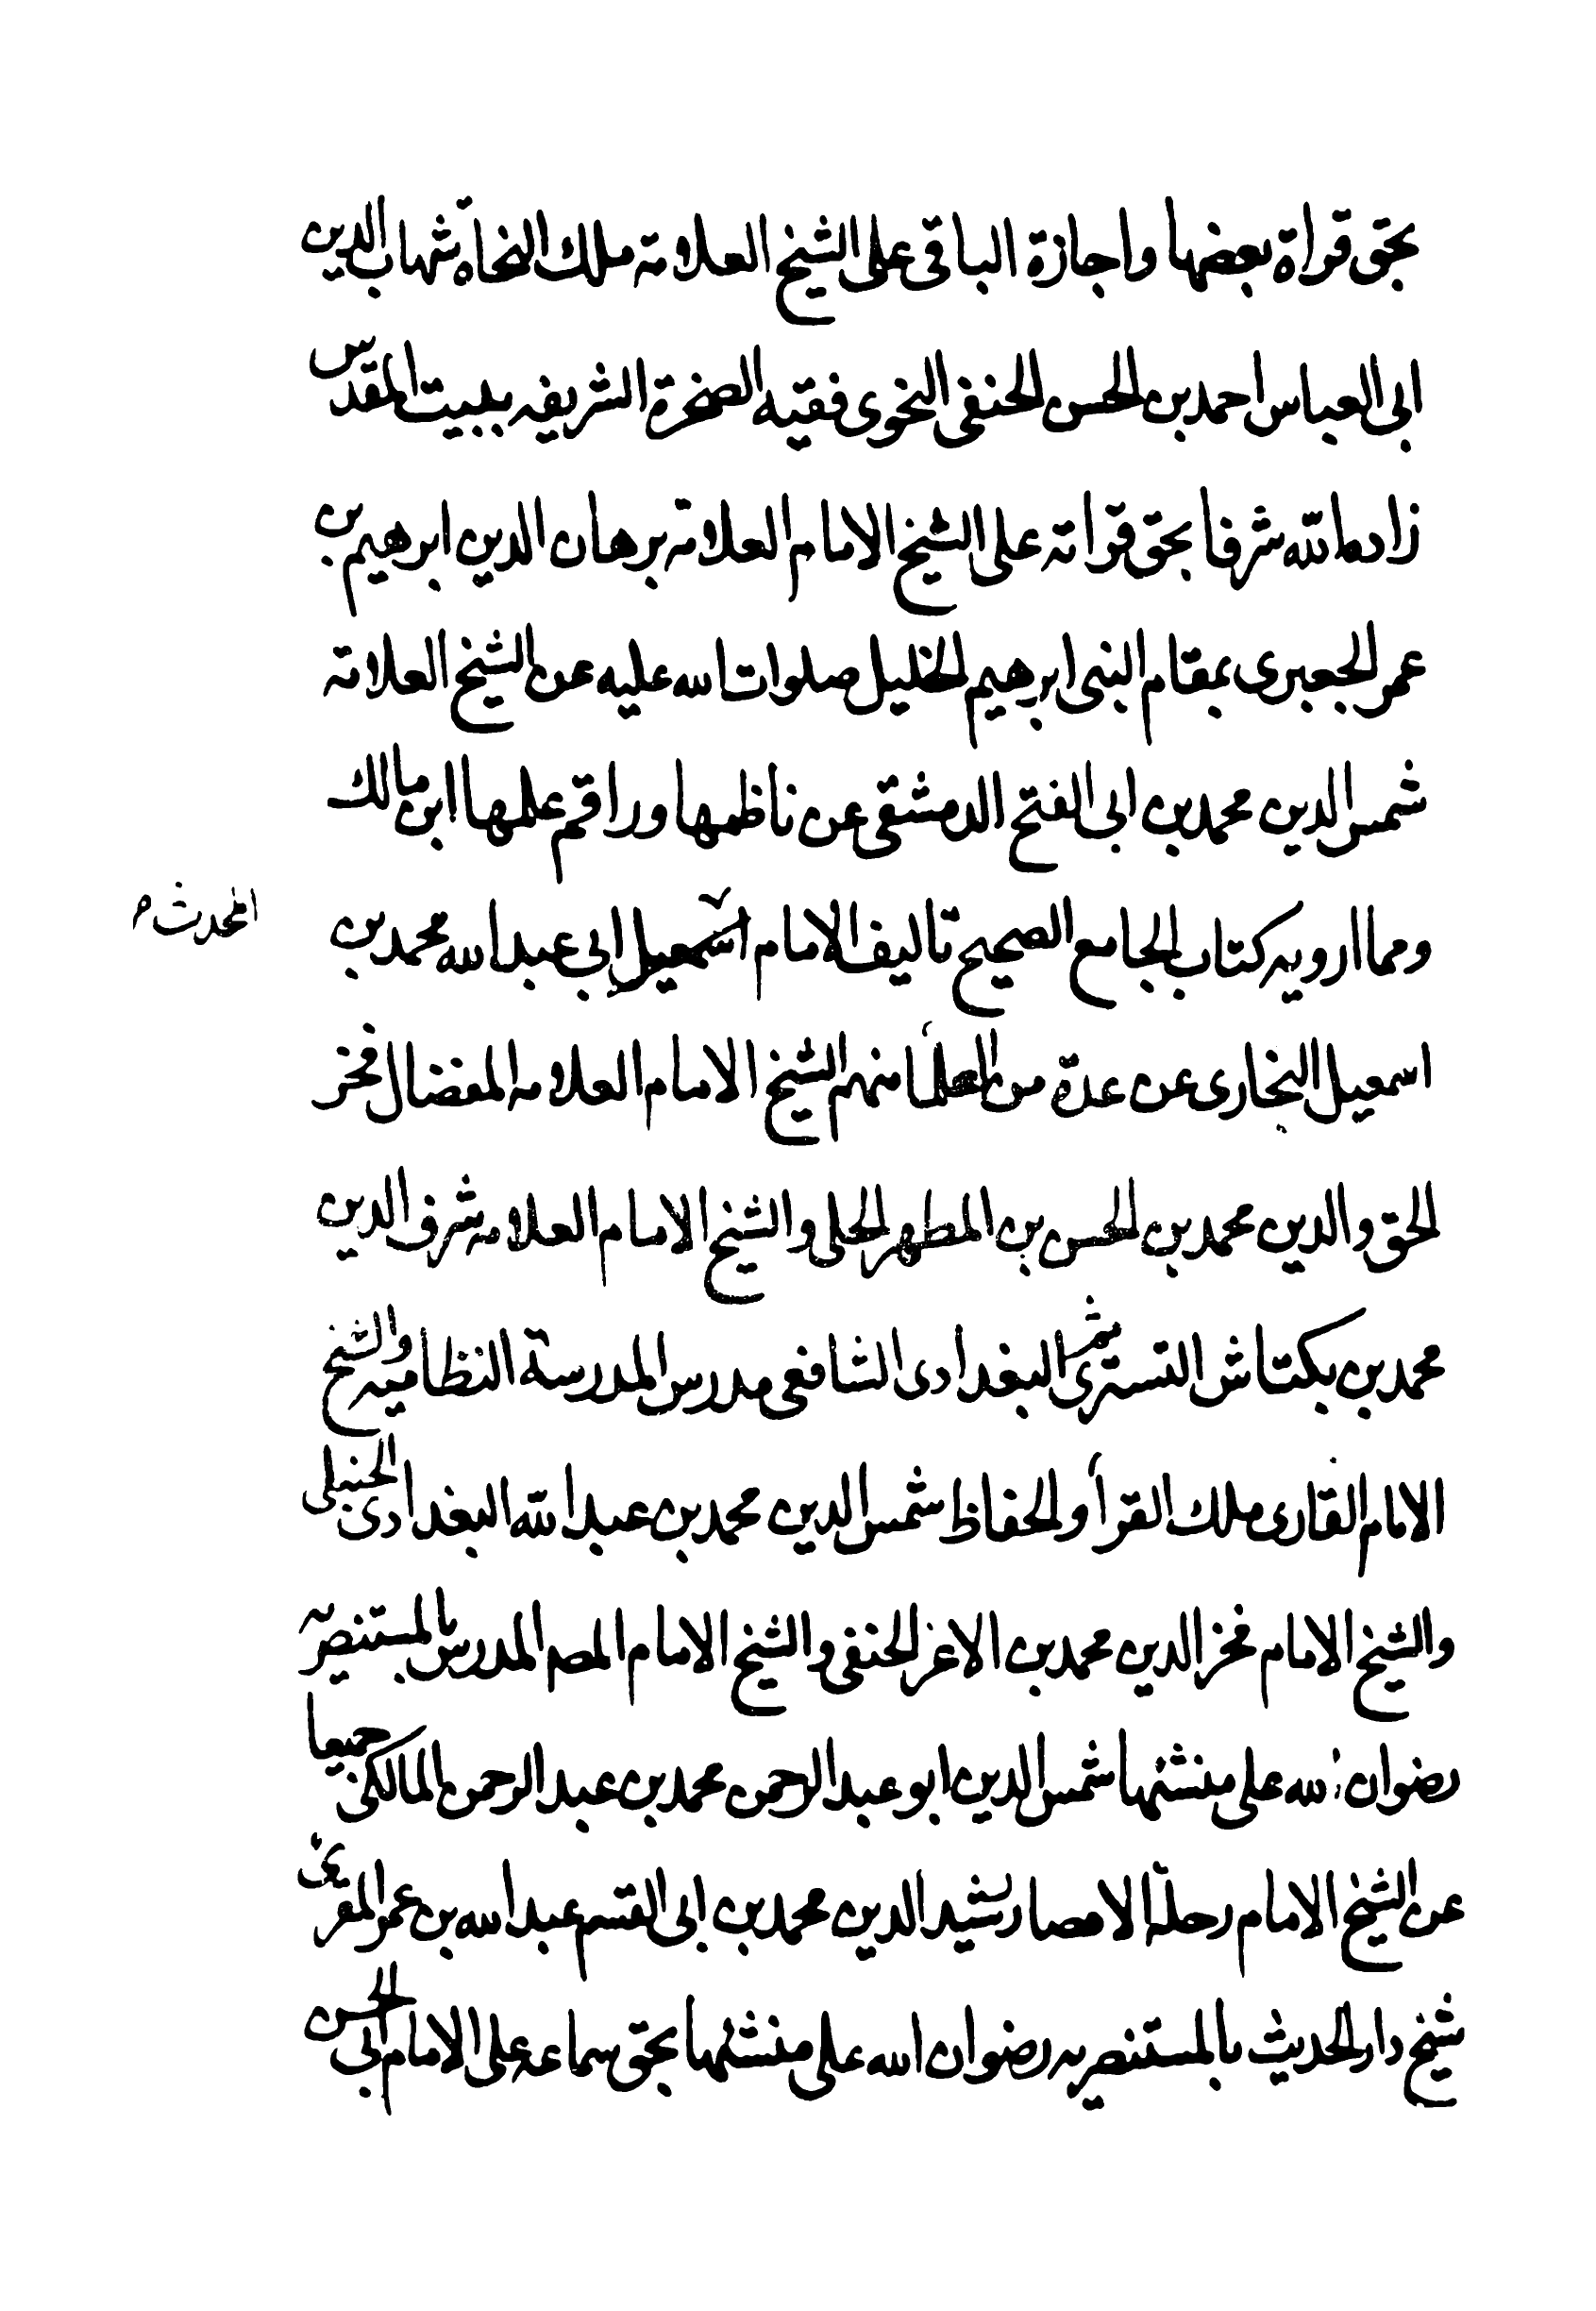 بحق قراة بعضها واجازة الباقى على الشيخ العلامة ملك النحاة شهاب الدين
ابى العباس احمد بن الحسن الحنفى النحوى فقيه الصخرة الشريفه ببيت المقدس
زادها الله شرفا بحق قراته على الشيخ الامام العلامة برهان الدين ابرهيم بن
عمر الجعبرى بمقام النبى ابرهيم الخليل صلوات الله عليه عن الشيخ العلامة
شمس الدين محمد بن ابى الفتح الدمشقى عن ناظمها وراقم علمها ابن مالك
ومما ارويه كتاب الجامع الصحيح تاليف الامام ابى عبد الله محمد بن
المحدث
اسمعيل البخارى عن عدة من العلماء منهم الشيخ الامام العلامه المفضال فخر
الحق والدين محمد بن الحسن بن المطهر الحلى والشيخ الامام العلامه شرف الدين
محمد بن بكتاش التسترى ثم البغدادى الشافعى مدرس المدرسة النظاميه والشيخ
الامام القارى ملك القراء والحفاظ شمس الدين محمد بن عبد الله البغدادى الحنبلى
والشيخ الامام فخر الدين محمد بن الاعز الحنفى والشيخ الامام المدرس بالمستنصريه
رضوان الله على منشئها شمس الدين ابو عبد الرحمن محمد بن عبد الرحمن المالكى جميعا
عن الشيخ الامام رحلة الامصار رشيد الدين محمد بن ابى القسم عبد الله بن عمر المقرى
شيخ دار الحديث بالمستنصريه رضوان الله على منشئها بحق سماعه على الامام ابى الحسن